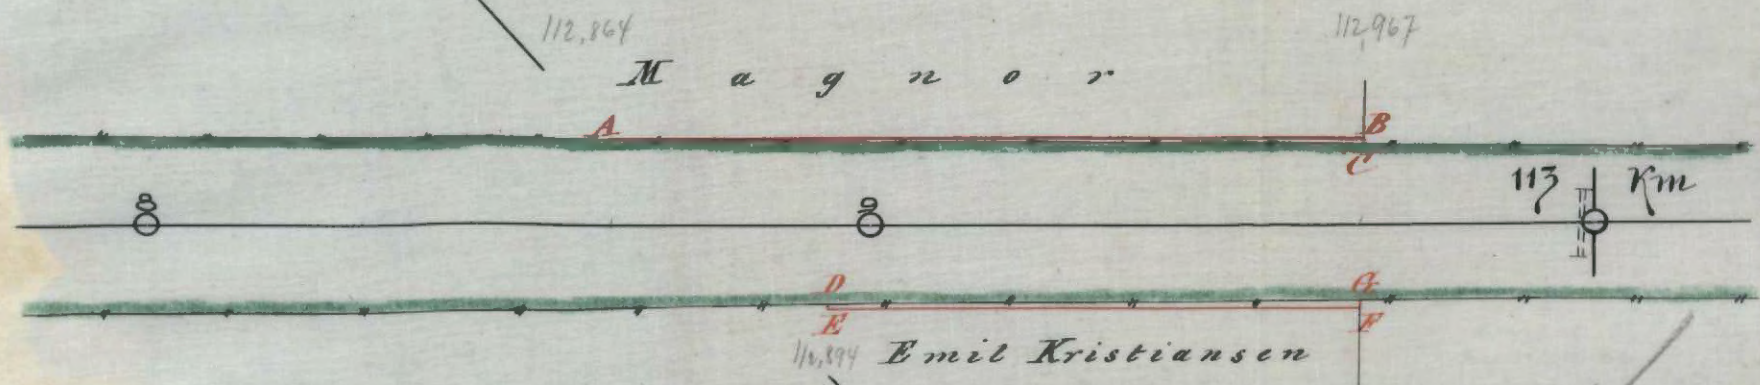 112,864
112,967
Magnor
A
B
C
113 Km
8
9
D
G
E
F
112,894
Emil Kristiansen